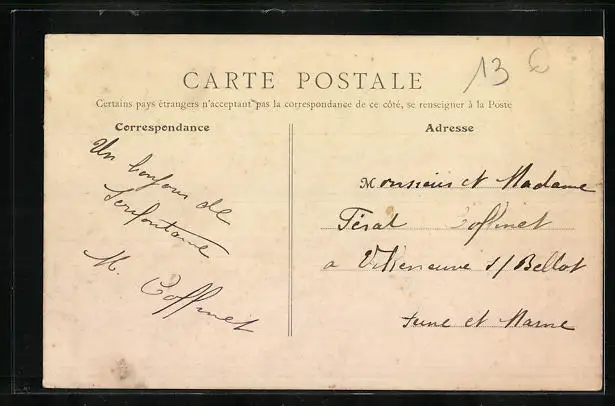 13
CARTE POSTALE
Certains pays étrangers n'acceptant pas la correspondance de ce côté, se renseigner à la Poste
Correspondance
Un bonjour de
M. Coffinet
Adresse
Monsieur et Madame
Féral Coffinet
a Villeneuve s/ Bellot
Seine et Marne